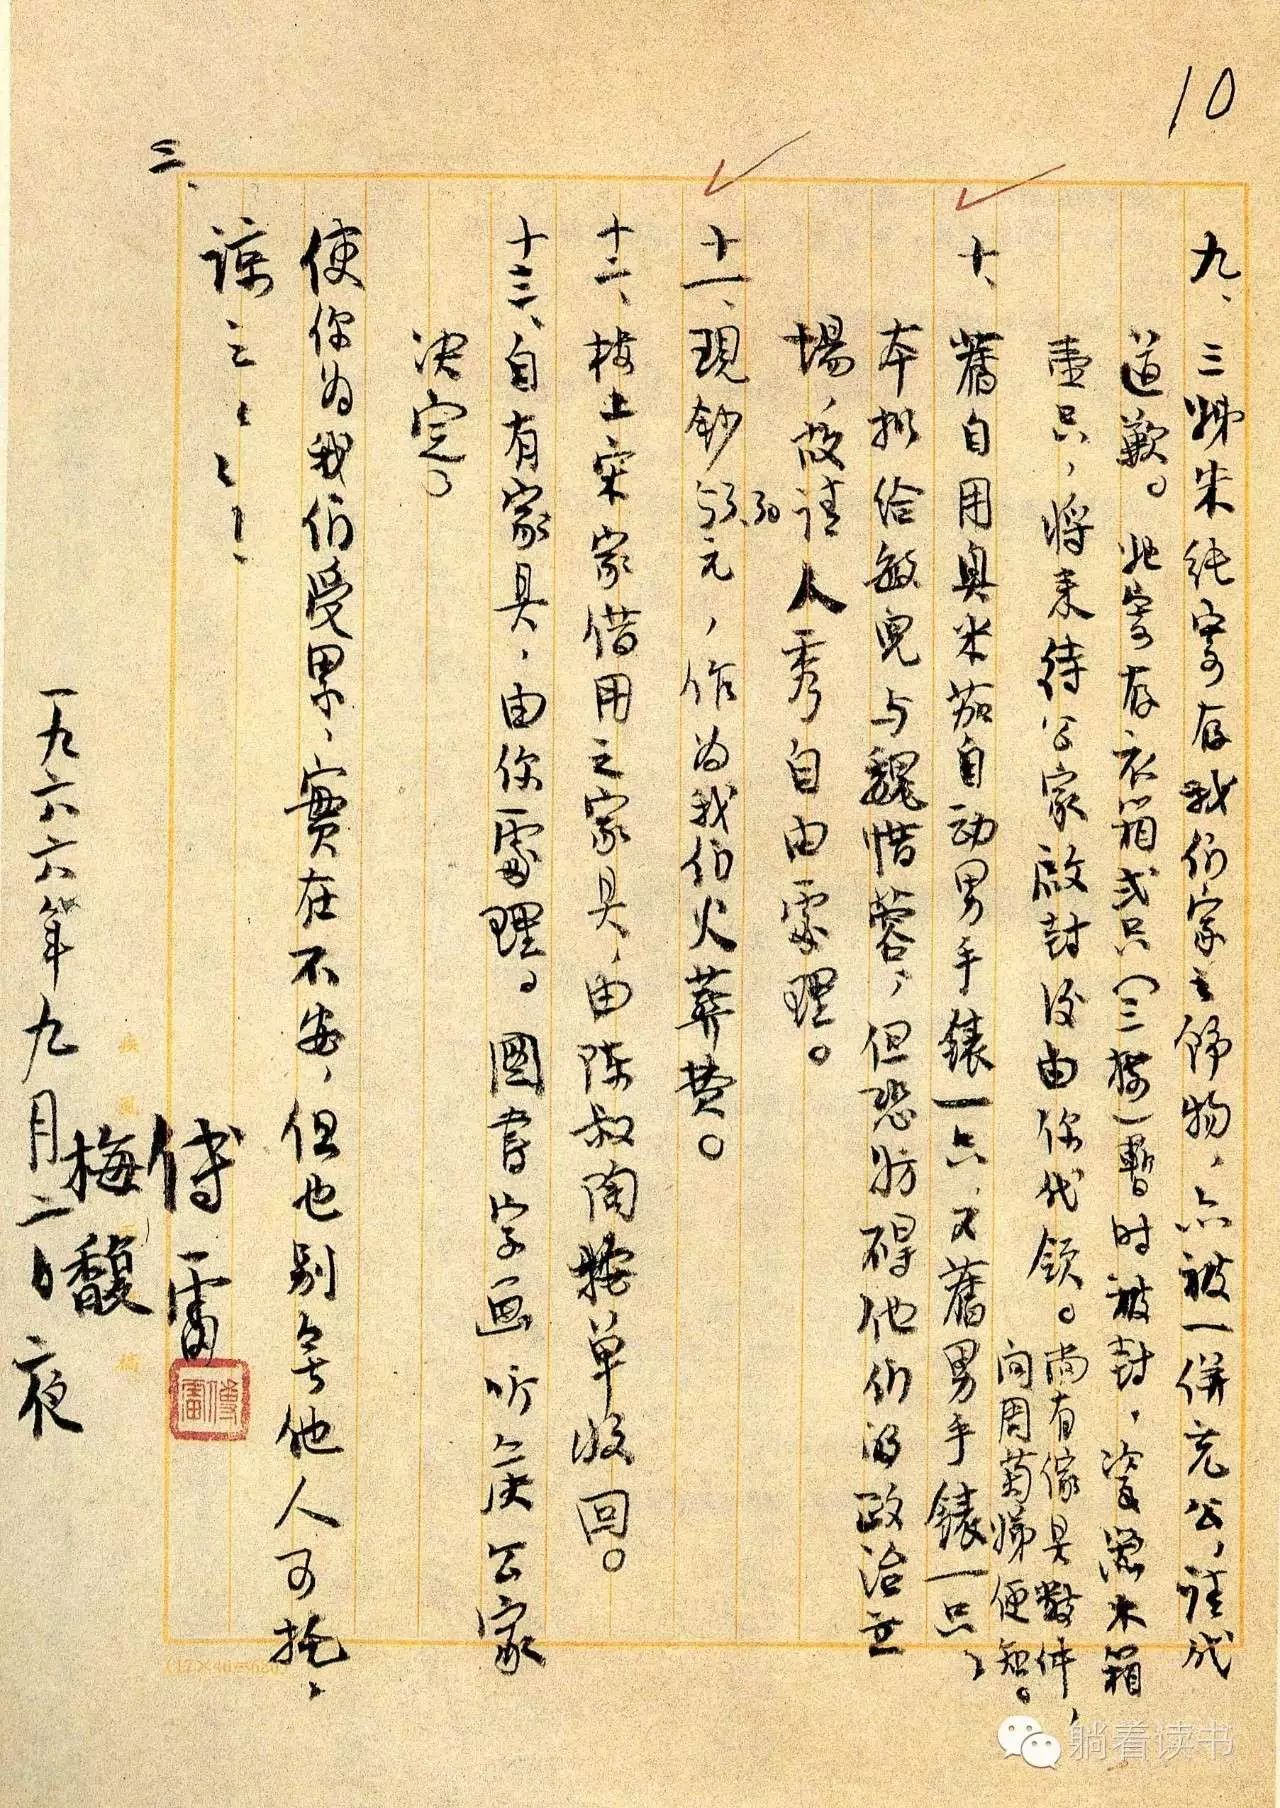 10
九、三姊朱纯寄存我们家之饰物，亦被一併充公，请代
道歉。她寄存衣箱弍只（三楼）暫时被封，瓷器木箱
壹只，将来待公家啟封後由你代领。尚有傢具数件，
向周菊娣便知。
十、舊自用奥米茄自动男手錶一只，又舊男手錶一只，
本拟给敏兒与魏惜蓉，但恐妨碍他们的政治立
場，故请人秀自由處理。
十一、現鈔53.30元，作为我们火葬费。
十二、楼上宋家借用之家具，由陈叔陶按单收回。
十三、自有家具，由你處理。圖書字画听候公家
决定。
使你为我们受累，實在不安，但也别无他人可托，
谅之谅之！
傅雷
梅馥
一九六六年九月二日夜
三、
傅雷
(17×40=680)
躺着读书